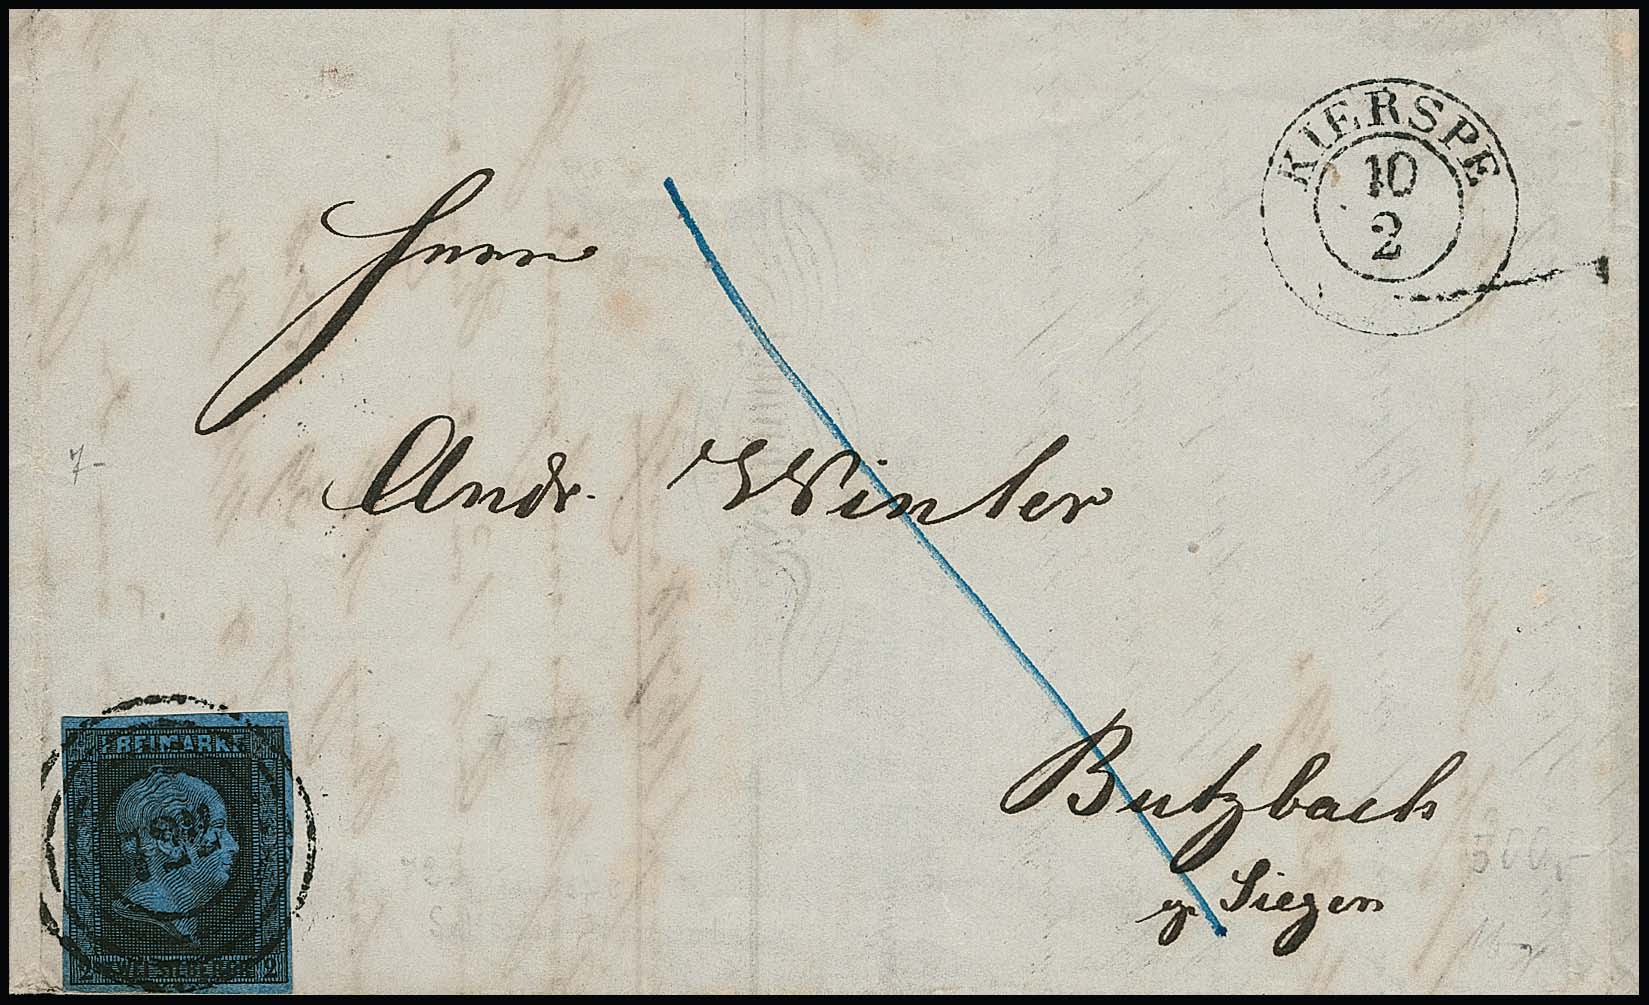 KIERSPE
10
2
Herrn
Andr. Winter
Butzbach
Siegen
FREIMARKE
2 ZWEI SILBERGR. 2